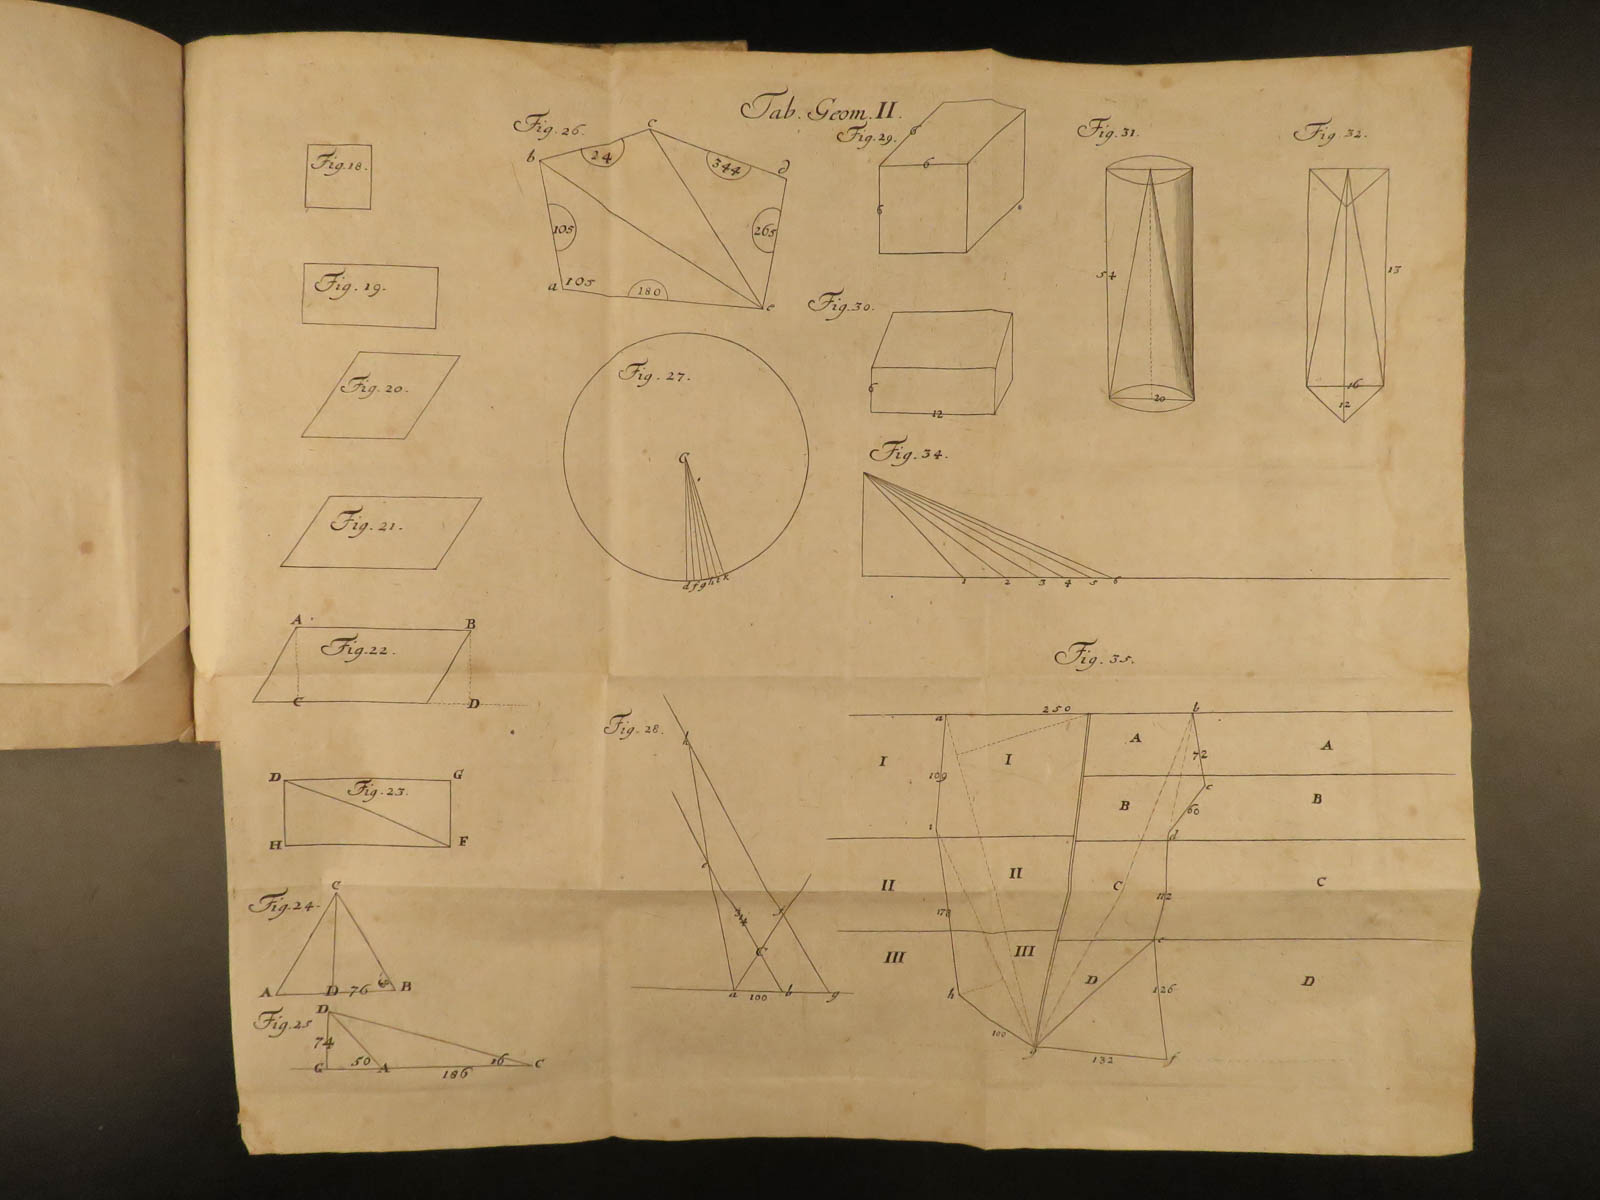 Tab. Geom. II.
Fig. 18.
Fig. 19.
Fig. 20.
Fig. 21.
A B
Fig. 22.
C D
D G
Fig. 23.
H F
C
Fig. 24.
A D 76 B
D
Fig. 25
74
50 16 C
G A
186
Fig. 26.
c
b 24 344 d
105 265
a 105 180 e
Fig. 27.
C
d f g h i k
Fig. 28.
h
e
314 f
C
a 100 b g
Fig. 29.
6
6
6
Fig. 30.
6
12
Fig. 31.
54
20
Fig. 32.
13
16
12
Fig. 34.
1 2 3 4 5 6
Fig. 35.
a 250 b
I I A 72 A
109 c
B 60 B
i d
II II C 112 C
178
e
III III D 126 D
h
100
g 132 f